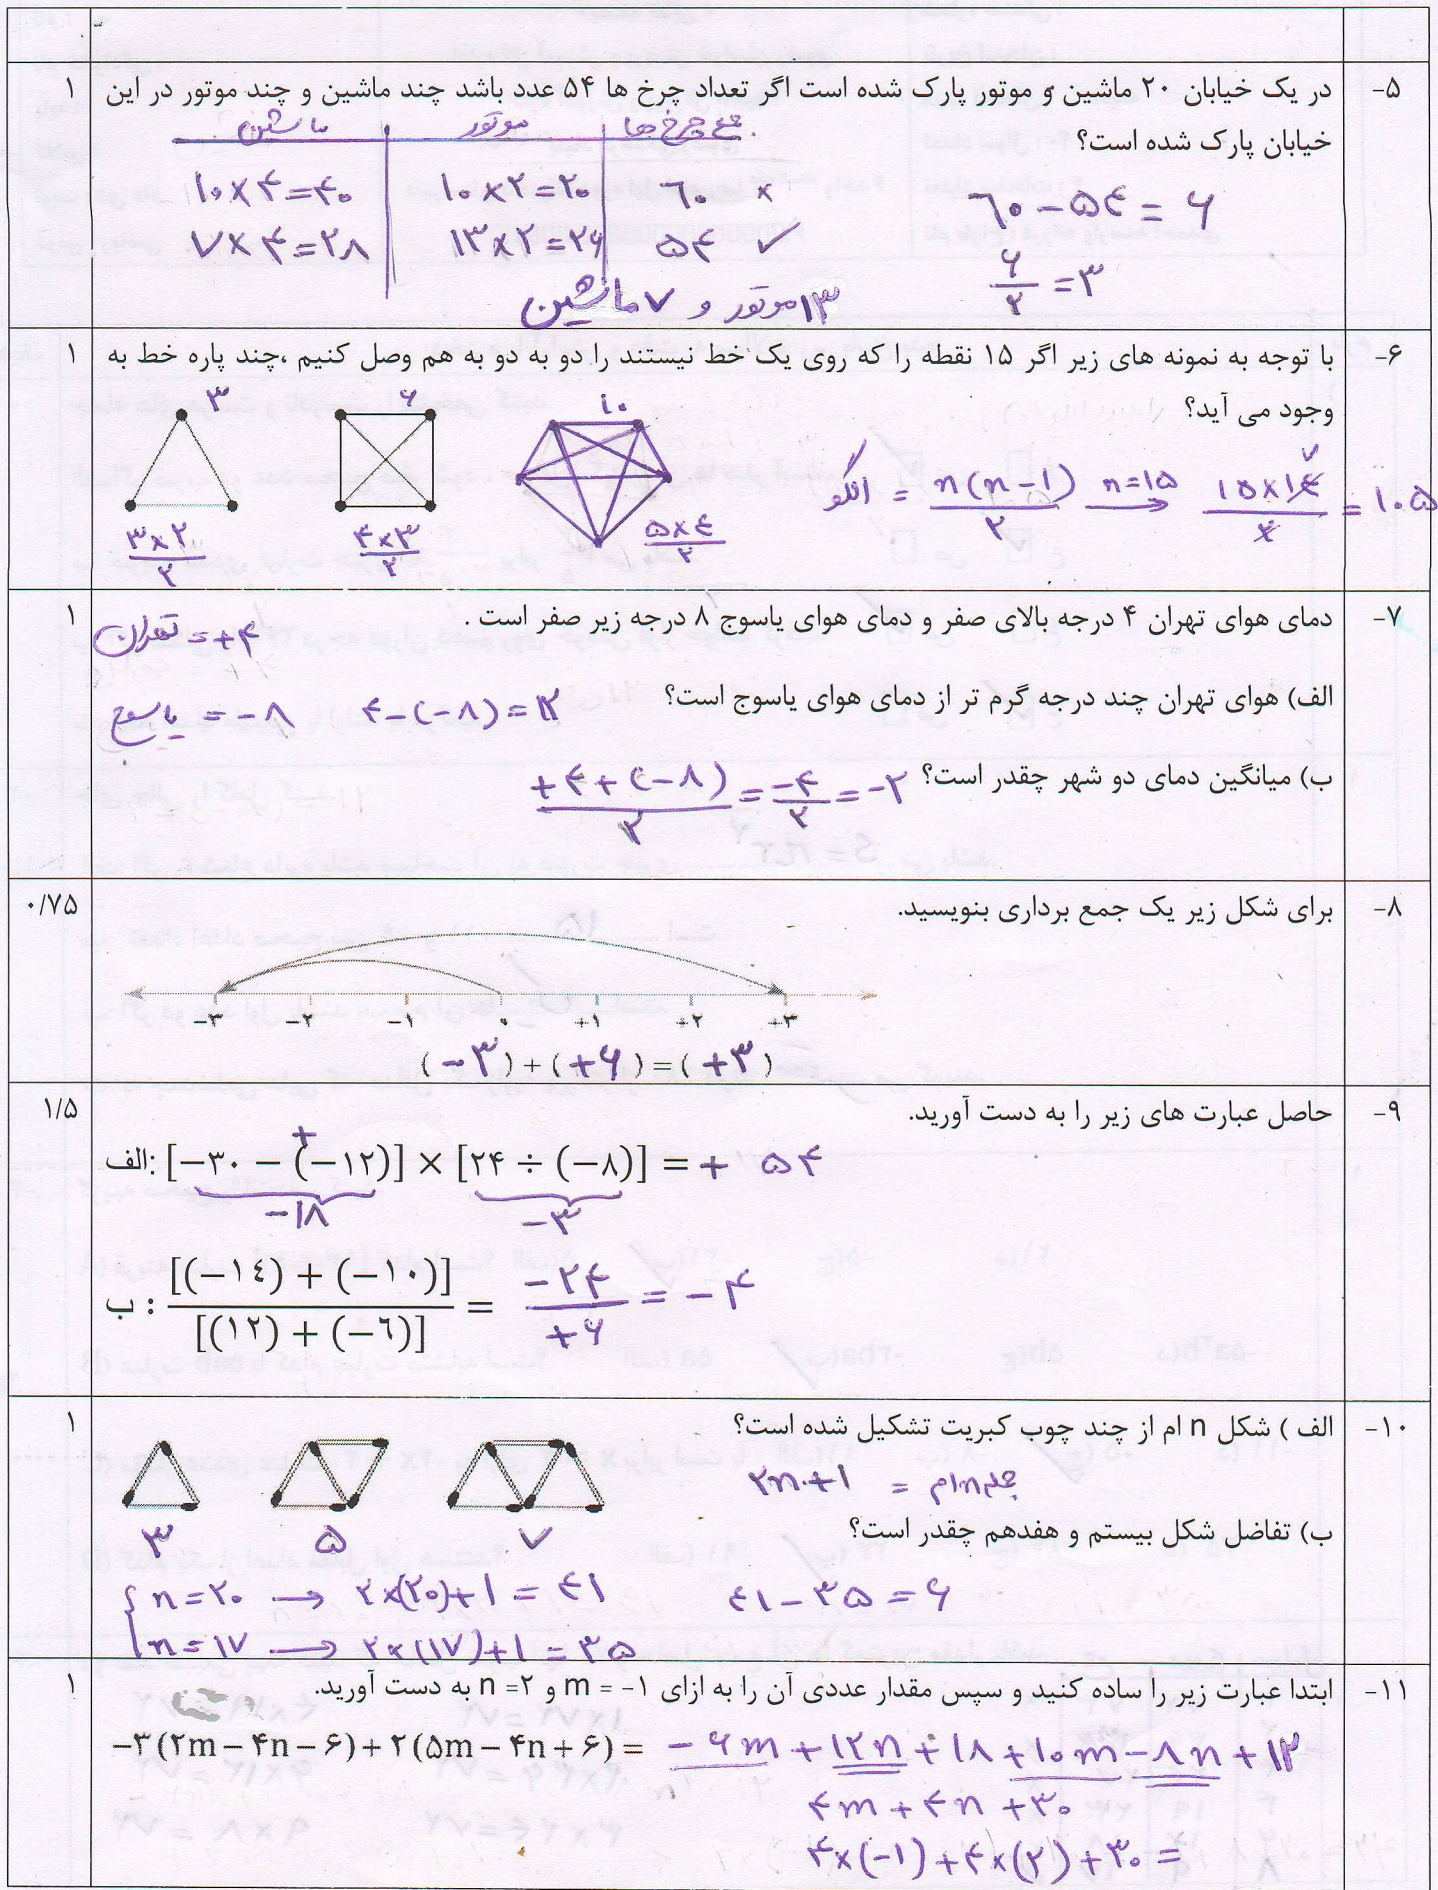 ۵- در یک خیابان ۲۰ ماشین و موتور پارک شده است اگر تعداد چرخ ها ۵۴ عدد باشد چند ماشین و چند موتور در این ۱
خیابان پارک شده است؟
ماشین موتور جمع چرخ ها
۱۰×۴=۴۰ ۱۰×۲=۲۰ ۶۰ ×
۷×۴=۲۸ ۱۳×۲=۲۶ ۵۴ ✓
۶۰-۵۴=۶
۶/۲=۳
۱۳ موتور و ۷ ماشین
۶- با توجه به نمونه های زیر اگر ۱۵ نقطه را که روی یک خط نیستند را دو به دو به هم وصل کنیم ،چند پاره خط به ۱
وجود می آید؟
۳ ۶ ۱۰
۳×۲/۲ ۴×۳/۲ ۵×۴/۲
الگو = n(n-1)/۲ n=۱۵ → ۱۵×۱۴/۲ = ۱۰۵
۷
۷- دمای هوای تهران ۴ درجه بالای صفر و دمای هوای یاسوج ۸ درجه زیر صفر است . ۱
تهران = +۴
الف) هوای تهران چند درجه گرم تر از دمای هوای یاسوج است؟
یاسوج = -۸ ۴-(-۸)=۱۲
ب) میانگین دمای دو شهر چقدر است؟ +۴+(-۸)/۲ = -۴/۲ = -۲
۸- برای شکل زیر یک جمع برداری بنویسید. ۰/۷۵
-۳ -۲ -۱ ۰ +۱ +۲ +۳
(-۳)+(+۶)=(+۳)
۹- حاصل عبارت های زیر را به دست آورید. ۱/۵
+
الف: [-۳۰-(-۱۲)]×[۲۴÷(-۸)]=+ ۵۴
-۱۸ -۳
ب: [(-١٤)+(-١٠)]/[(١٢)+(-٦)] = -۲۴/+۶ = -۴
۱۰- الف ) شکل n ام از چند چوب کبریت تشکیل شده است؟ ۱
جمله n ام = ۲n+۱
ب) تفاضل شکل بیستم و هفدهم چقدر است؟
۳ ۵ ۷
n=۲۰ → ۲×(۲۰)+۱=۴۱ ۴۱-۳۵=۶
n=۱۷ → ۲×(۱۷)+۱=۳۵
۱۱- ابتدا عبارت زیر را ساده کنید و سپس مقدار عددی آن را به ازای m = -۱ و n =۲ به دست آورید. ۱
-۳(۲m-۴n-۶)+۲(۵m-۴n+۶)= -۶m+۱۲n+۱۸+۱۰m-۸n+۱۲
۴m+۴n+۳۰
۴×(-۱)+۴×(۲)+۳۰=